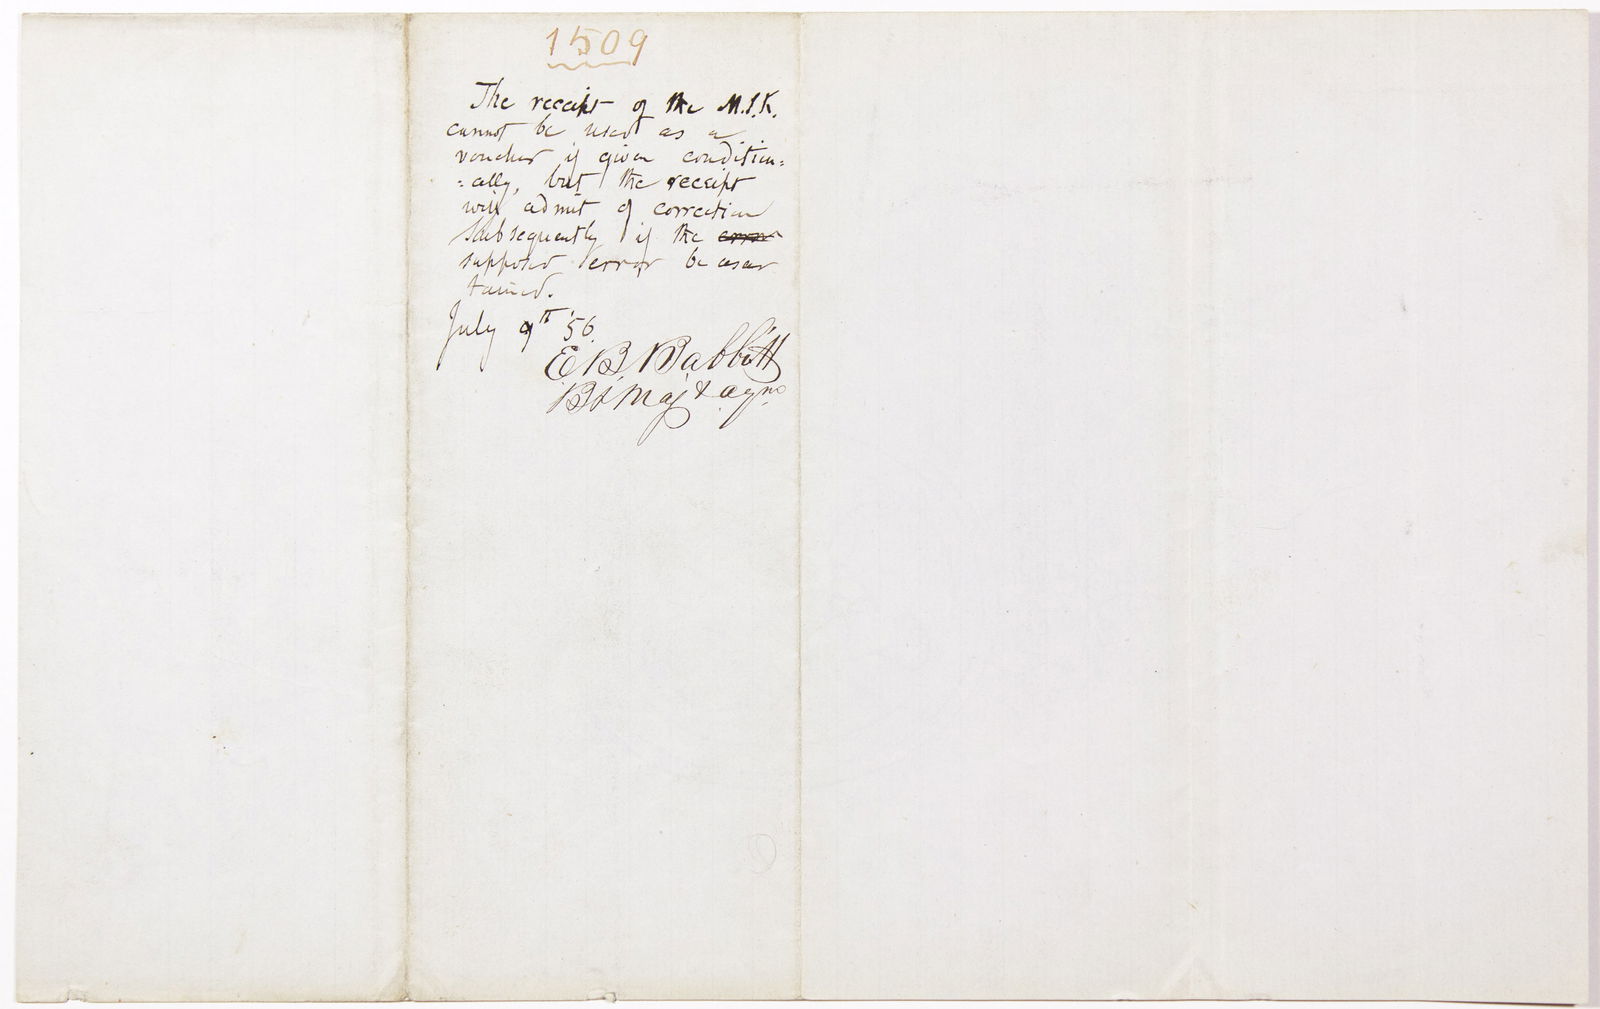 1509
The receipt of the M.S.K.
cannot be used as a
voucher if given condition=
=ally, but the receipt
will admit of correction
subsequently if the error
supposed error be ascer
tained.
July 9th '56.
E B Babbitt
Bt Maj & aqm